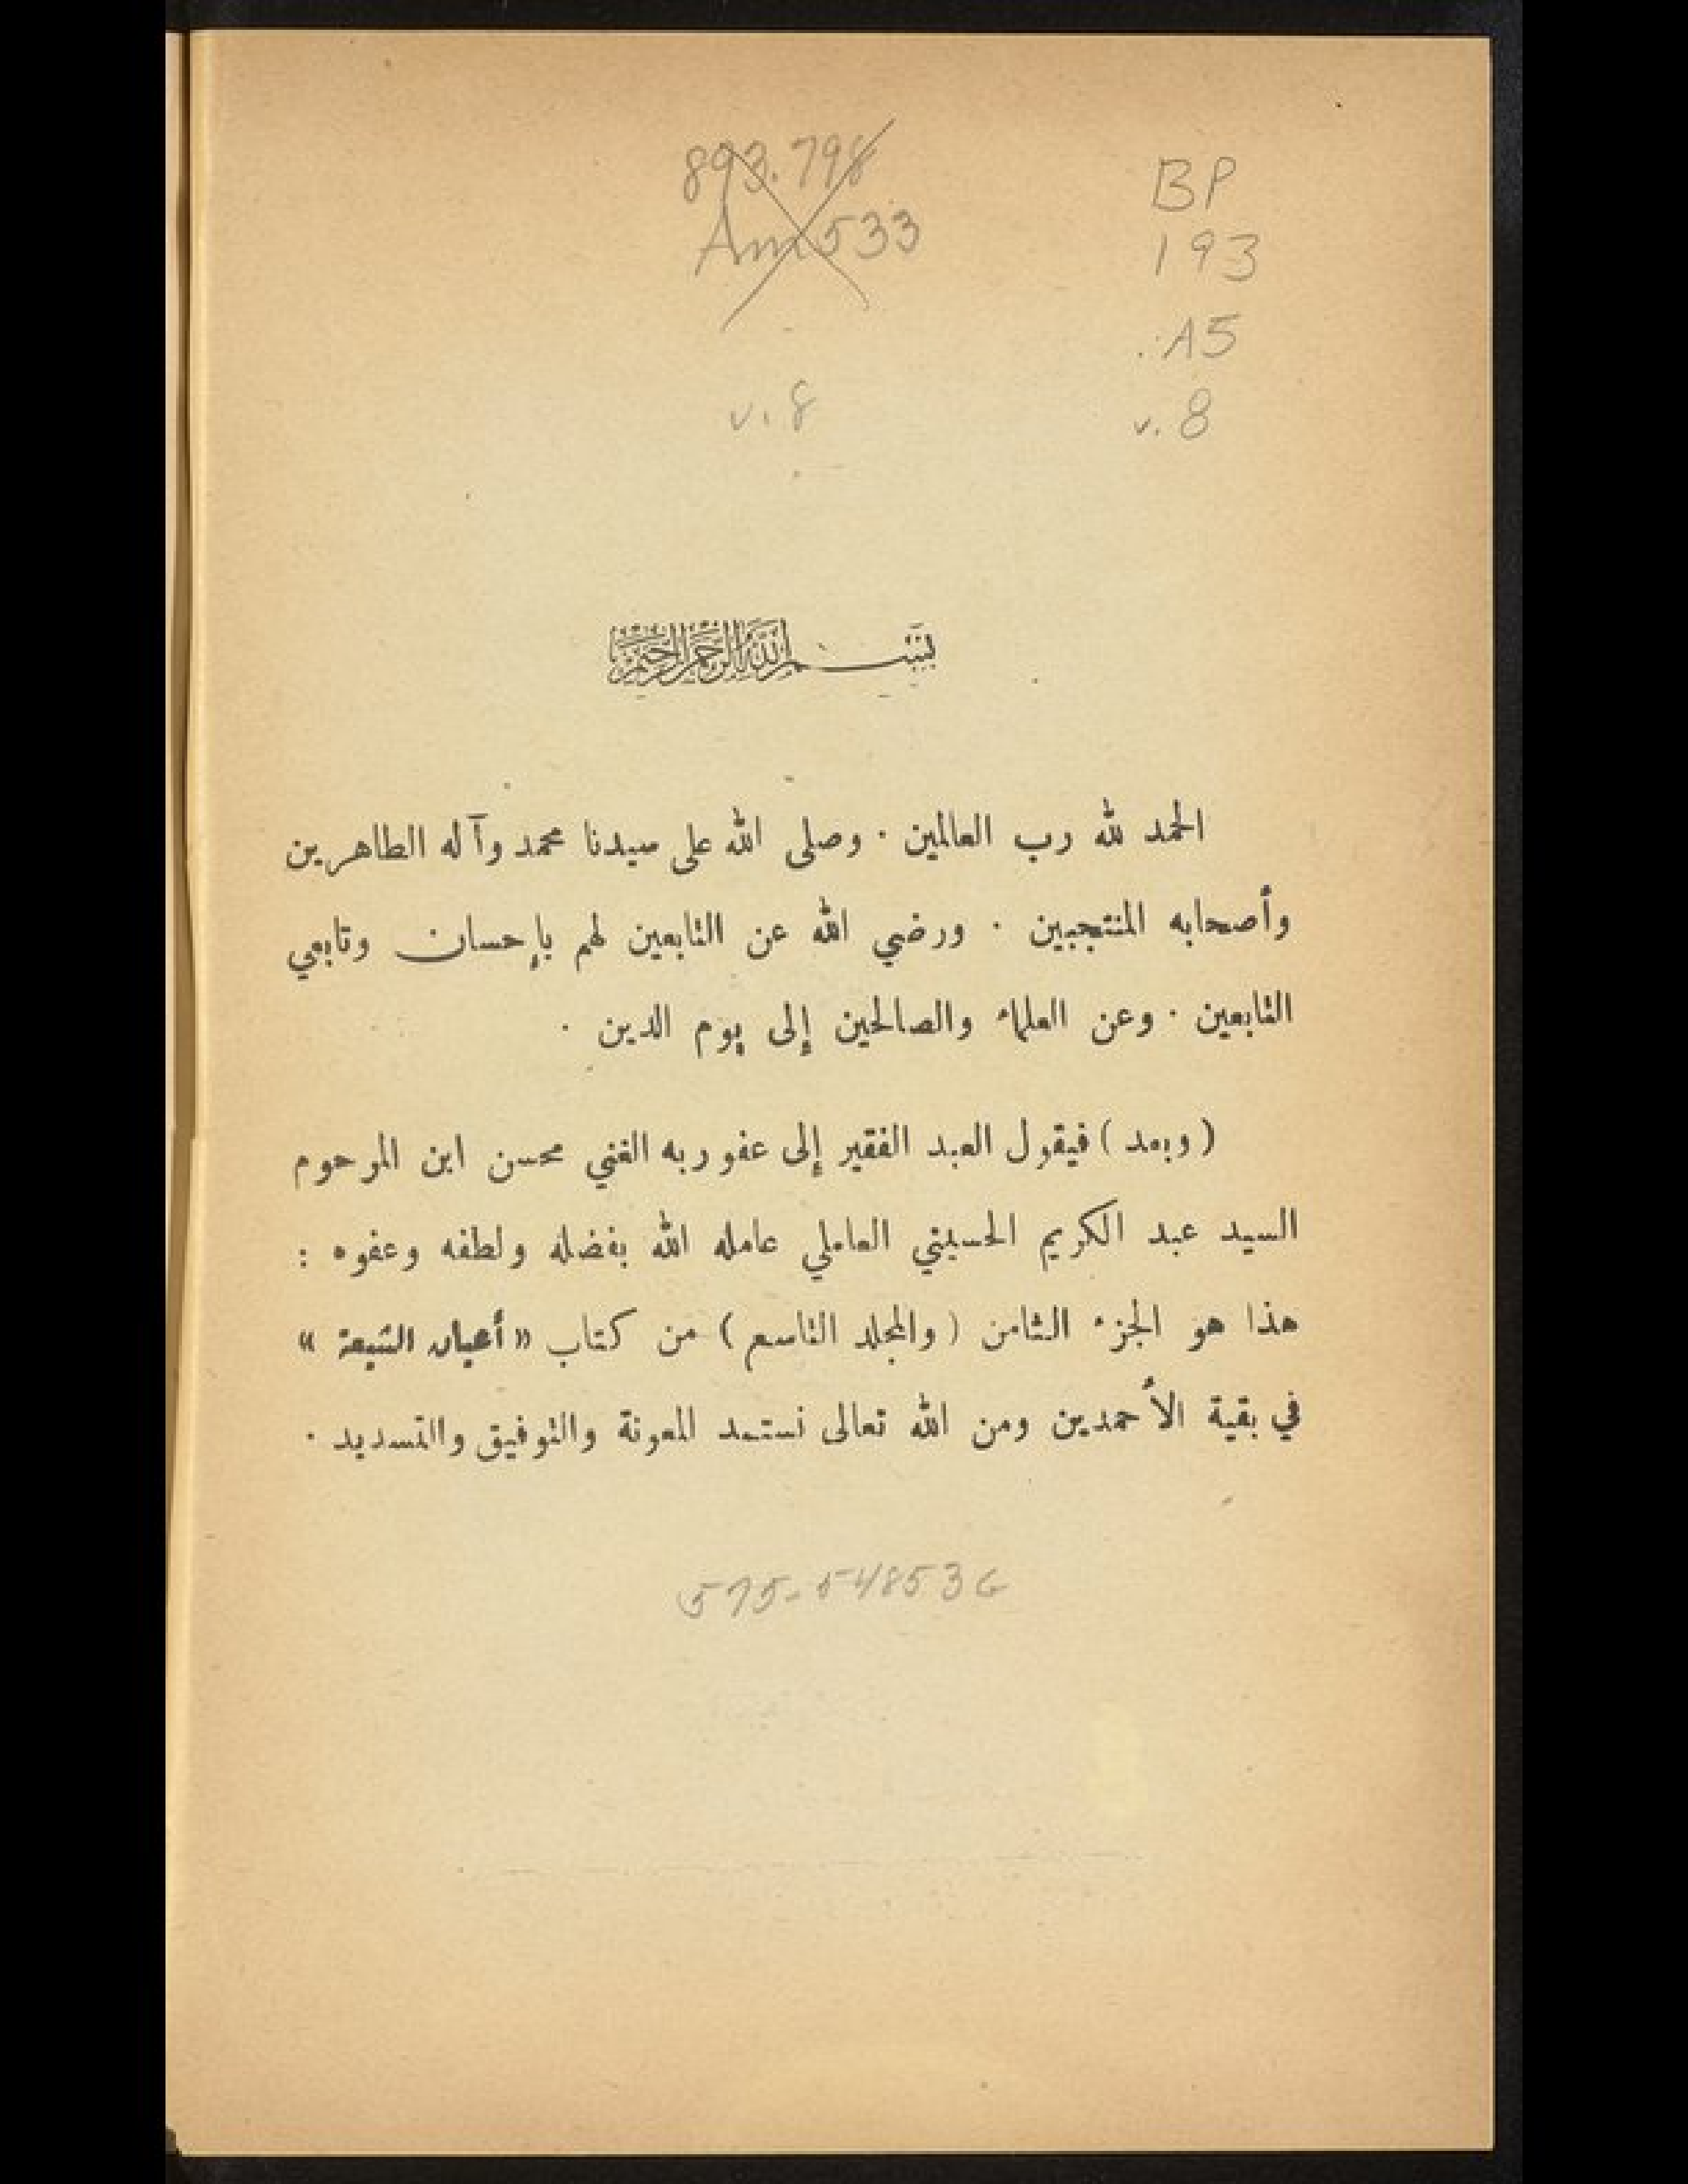 893.798
Am 533
v. 8
BP
193
.A5
v. 8
بسم الله الرحمن الرحيم
الحمد لله رب العالمين . وصلى الله على سيدنا محمد وآله الطاهرين
وأصحابه المنتجبين . ورضي الله عن التابعين لهم بإحسان وتابعي
التابعين . وعن العلماء والصالحين إلى يوم الدين .
( وبعد ) فيقول العبد الفقير إلى عفو ربه الغني محسن ابن المرحوم
السيد عبد الكريم الحسيني العاملي عامله الله بفضله ولطفه وعفوه :
هذا هو الجزء الثامن ( والمجلد التاسع ) من كتاب « أعيان الشيعة »
في بقية الأحمدين ومن الله تعالى نستمد المعونة والتوفيق والتسديد .